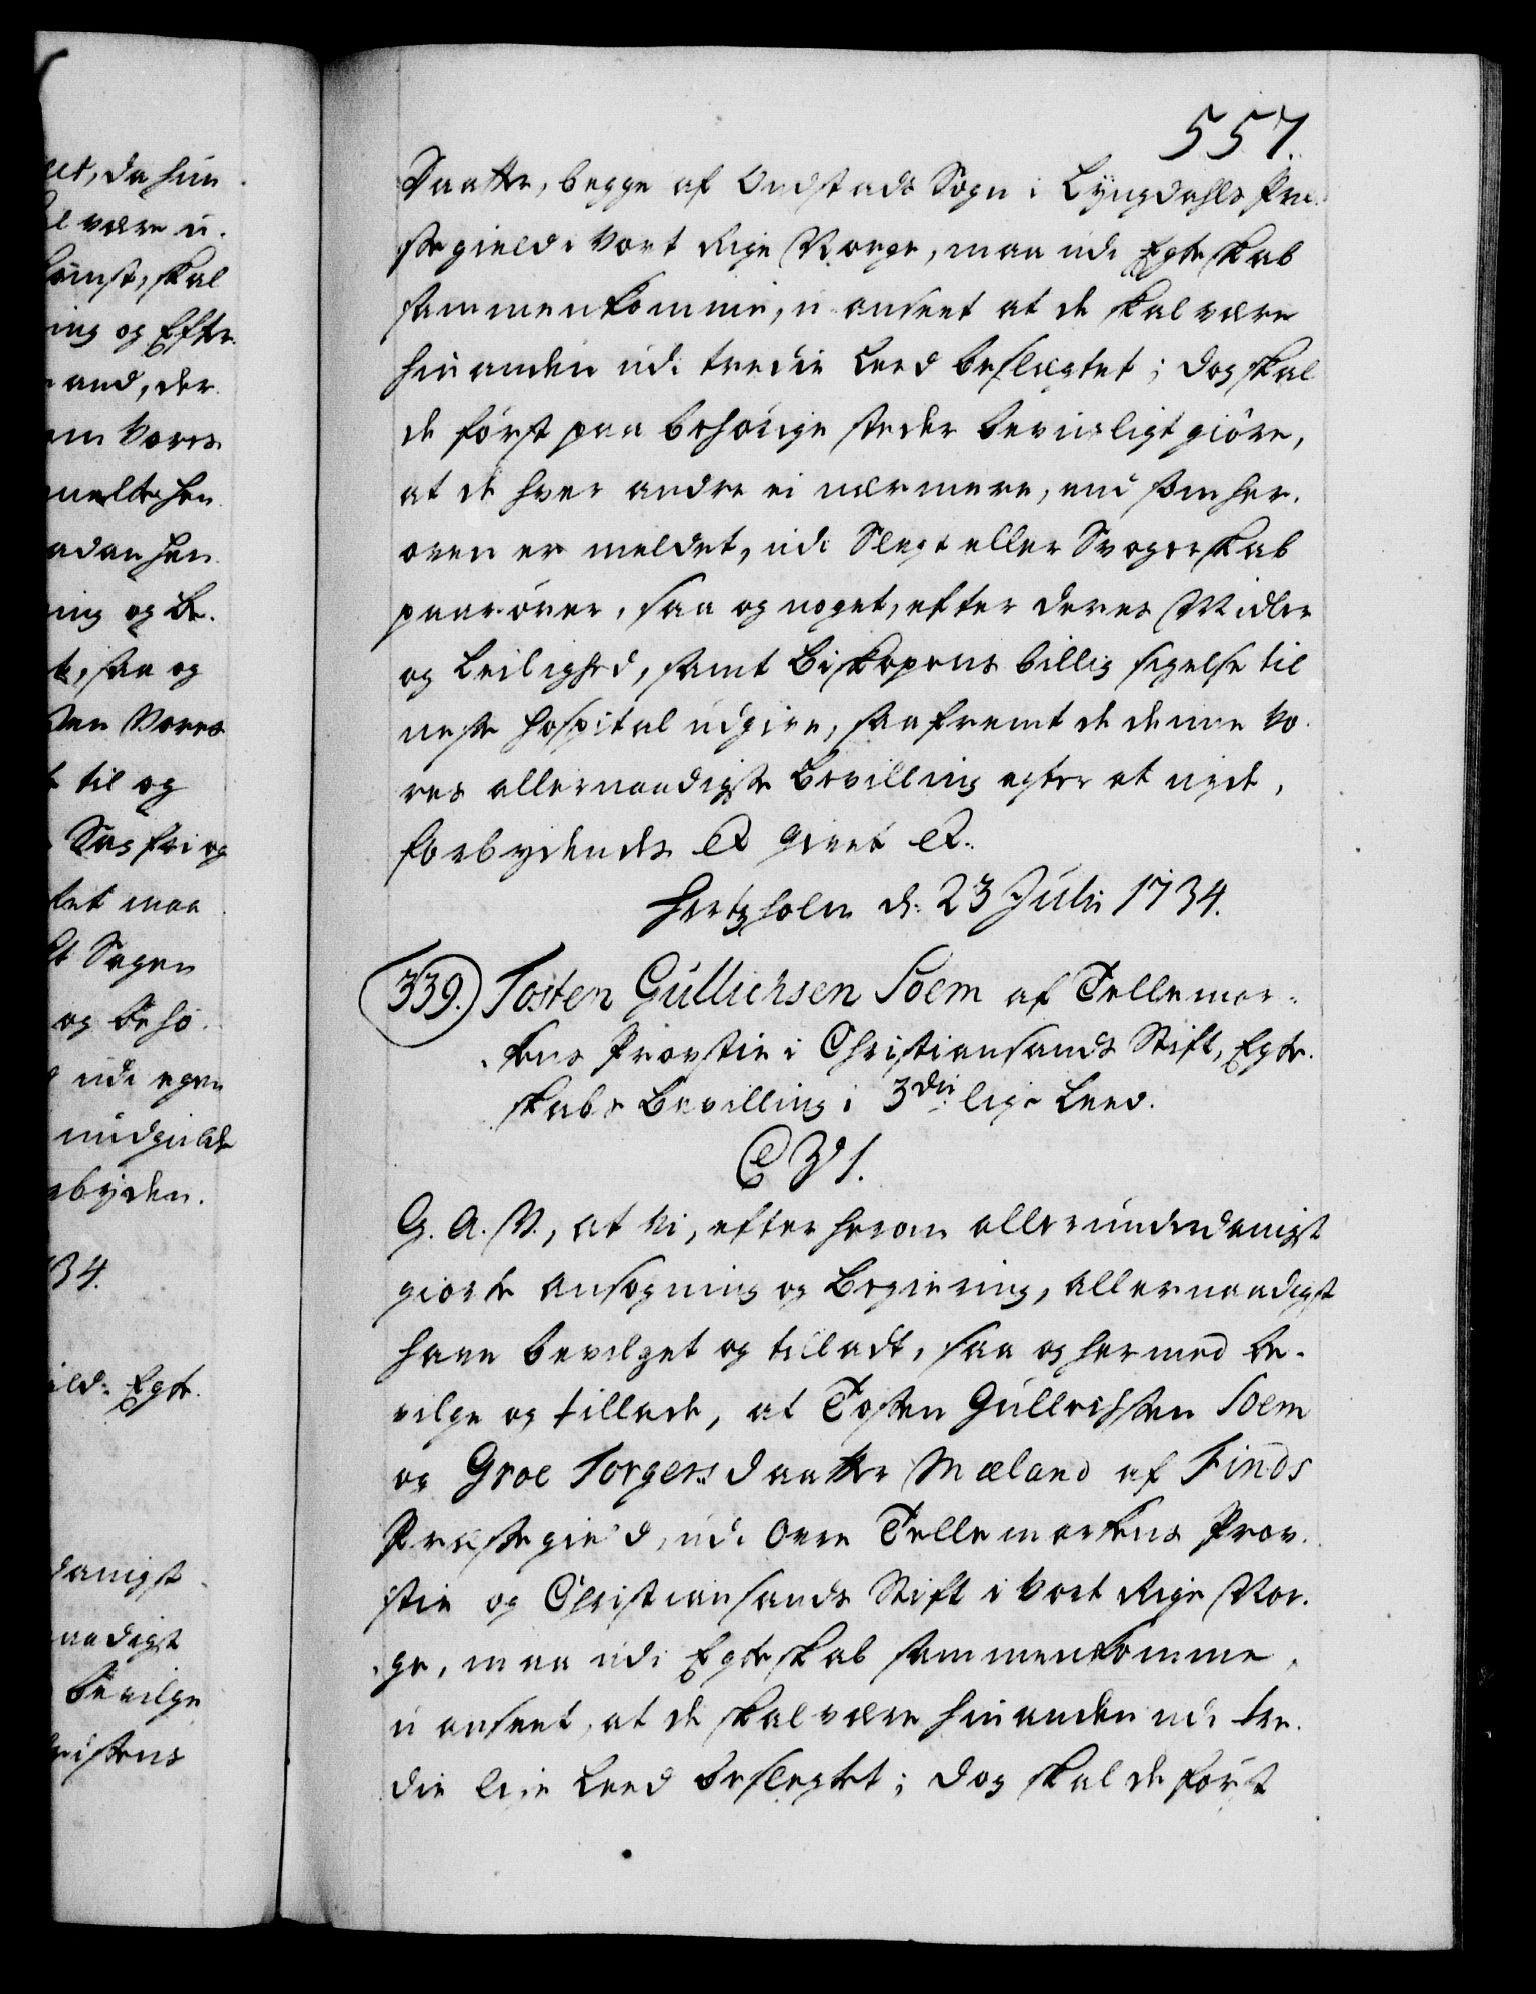 557.
Daatter, begge af Undstads Sogn i Lÿngdahls Præ-
stegield i Vort Rige Norge, maa udi Egteskab
sammenkomme, u-anseet at de skal være
hinanden udi tredie Leed beslægtet; dog skal
de først paa behörige steder beviisligt giöre,
at de hver andre ei nærmere, end som her-
oven er meldet, udi Slegt eller Svogerskab
paarörer, saa og noget, efter deres Midler
og Leilighed, samt Biskopens billig sigelse til
neste Hospital udgive, saafremt de denne Vo-
res allernaadigste Bevilling agter at nyde,
forbydendes &c givet &c.
Hertzholm d: 23 Julii 1734.
339. Tosten Gullichsen Soem af Tellemar-
kens Provstie i Christiansands Stift, Egte-
skabs Bevilling i 3die lige Leed.
C 6 V 1.
G. A. V., at Vi, efter herom allerunderdanigst
giorte Ansögning og Begiering, allernaadigst
have bevilget og tilladt, saa og hermed be-
vilge og tillade, at Tosten Gullichsen Soem
og Groe Torgersdaatter Mæland af Finds
Præstegield, udi Övre Tellemarkens Prov-
stie og Christiansands Stift i Vort Rige Nor-
ge, maa udi Egteskab sammenkomme,
u anseet, at de skal være hinanden udi tre-
die lige Leed beslegtet; dog skal de först